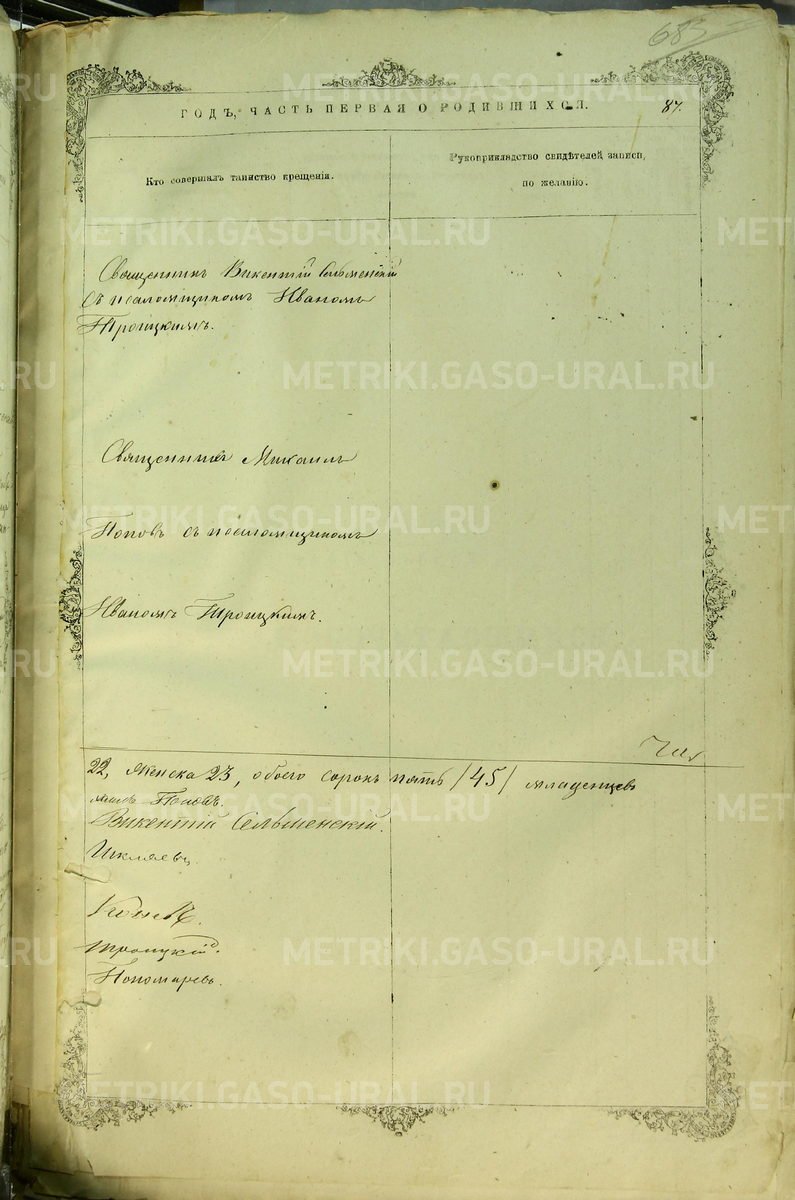 683
ГОДЪ, ЧАСТЬ ПЕРВАЯ О РОДИВШИХСЯ.
87.
Кто совершалъ таинство крещенія.
Рукоприкладство свидѣтелей записи,
по желанію.
Священникъ Викентій Сельменскій
съ псаломщикомъ Иваномъ
Троицкимъ.
Священникъ Михаилъ
Поповъ съ псаломщикомъ
Иваномъ Троицкимъ.
22, женска 23, обоего сорокъ пять /45/ младенцевъ
Поповъ.
Викентій Сельменскій.
Шкляевъ
Троицкій.
Пономаревъ.
METRIKI.GASO-URAL.RU